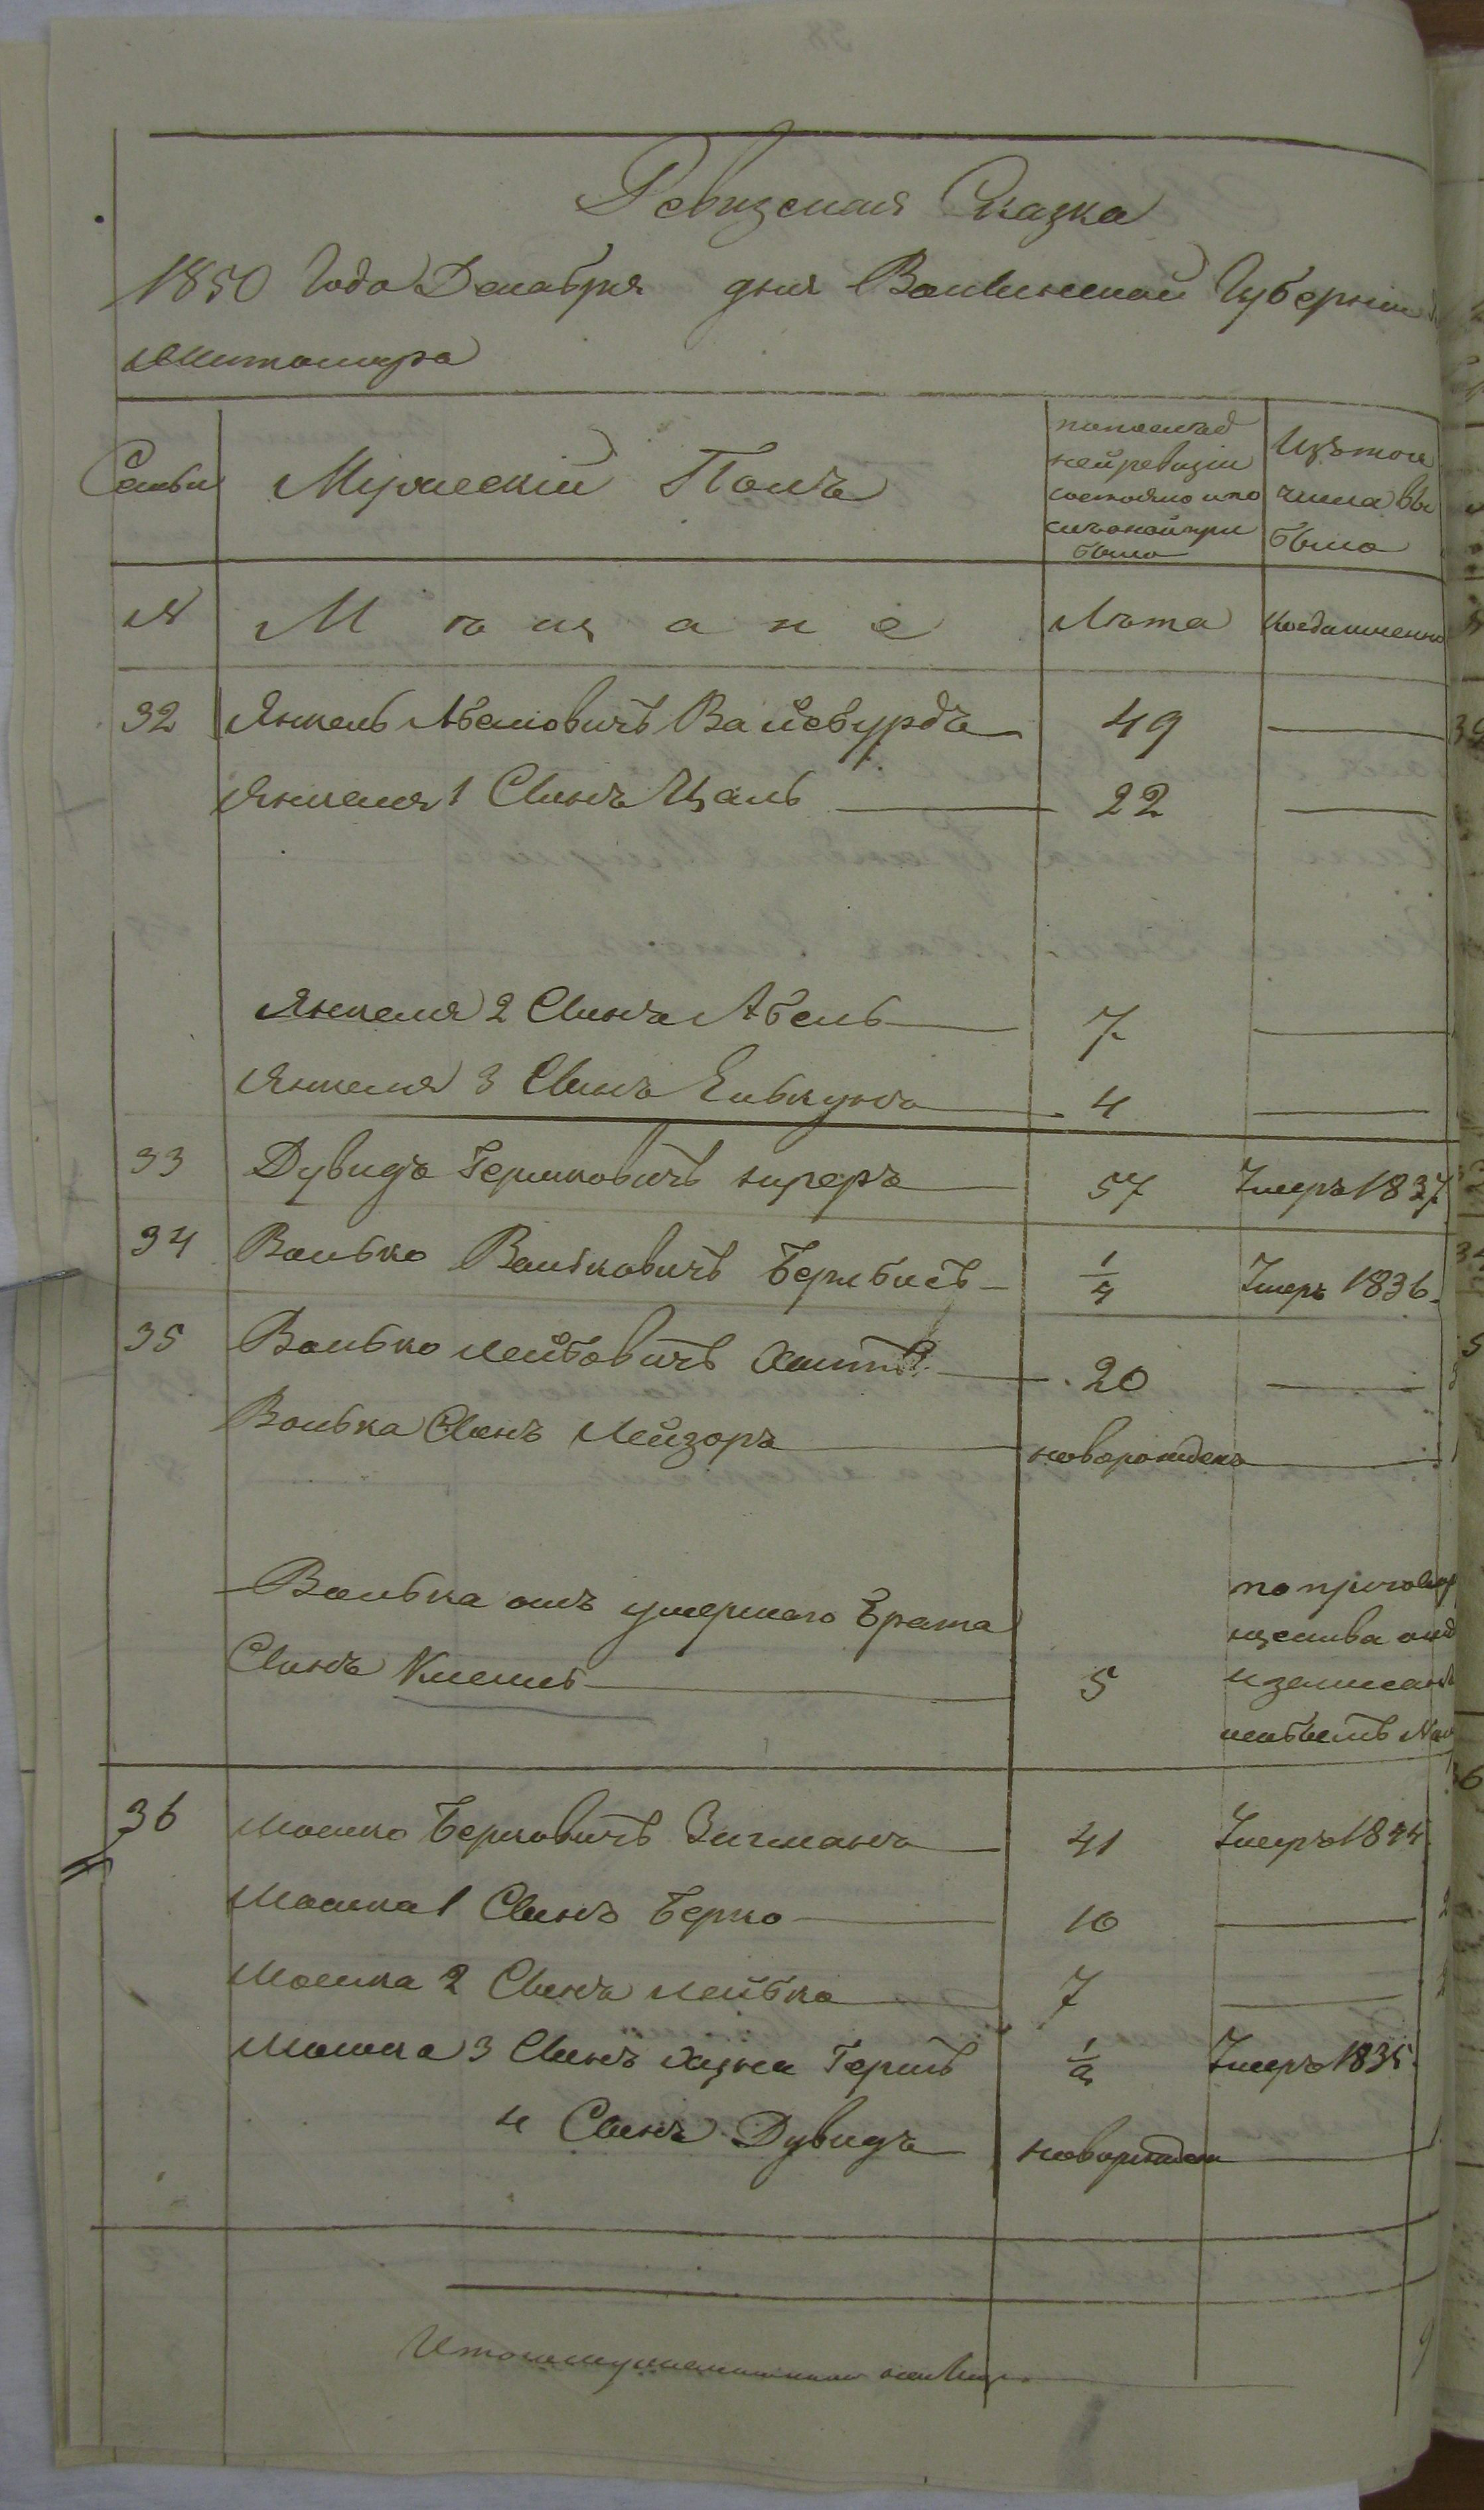 Ревизская Сказка
1850 Года Декабря дня Волынской Губернии
Житомира
Семьи Мужескій Полъ по послед ней ревизіи состояло и по слѣ оной при было Изъ того числа вы было
№ Мѣщане Лѣта Когда именно
32 Янкель Абеловичъ Вайсбурдъ 49
Янкеля 1 Сынъ Цаль 22
Янкеля 2 Сынъ Абель 7
Янкеля 3 Сынъ 4
33 Дувидъ Гершковичъ 57 Умеръ 1837
34 Волько Вольковичъ 1/4 Умеръ 1836
35 Волько Лейбовичъ 20
Волька Сынъ Лейзоръ новорожденъ
Волька отъ умершаго брата
Сынъ 5
36 Мошко Берковичъ Зигманъ 41 Умеръ 1844
Мошка 1 Сынъ Берко 10
Мошка 2 Сынъ Лейбка 7
Мошка 3 Сынъ Гершъ 1/2 Умеръ 1835
4 Сынъ Дувидъ новорожден